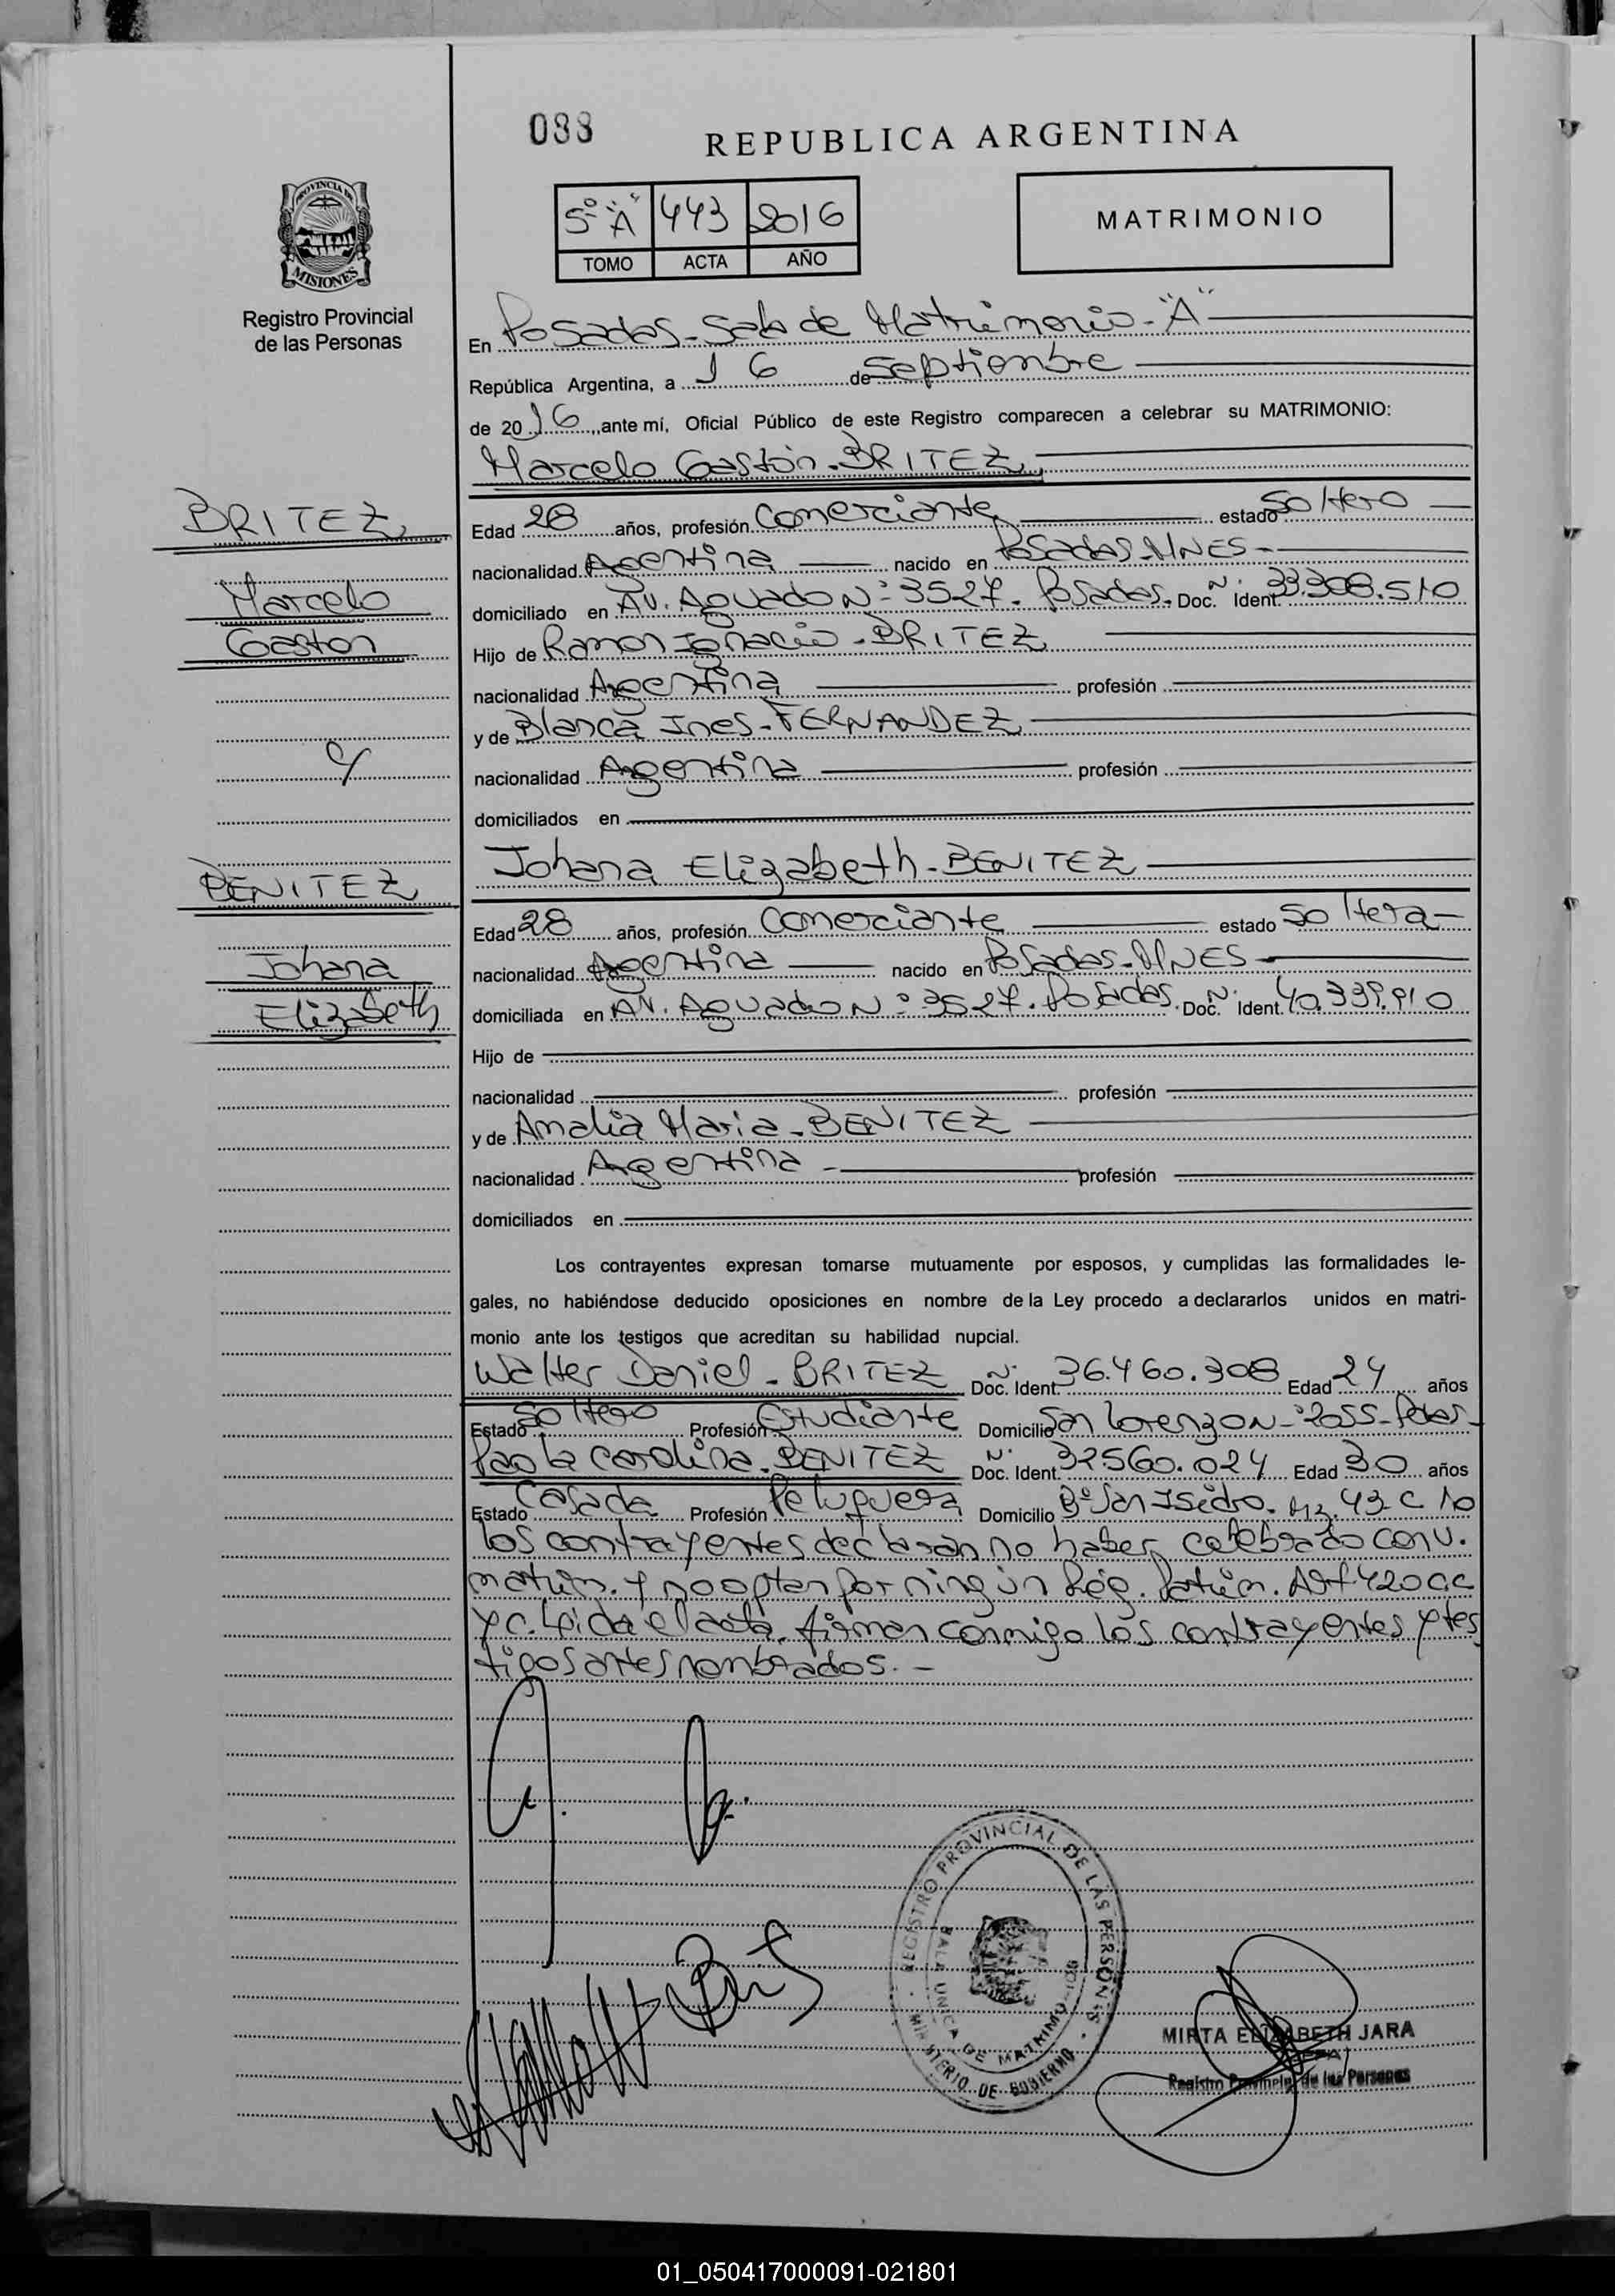 088
REPUBLICA ARGENTINA
5º "A" 443 2016
TOMO ACTA AÑO
MATRIMONIO
PROVINCIA DE
MISIONES
Registro Provincial
de las Personas
En Posadas - Sala de Matrimonio - "A"
República Argentina, a 16 de Septiembre
de 2016, ante mí, Oficial Público de este Registro comparecen a celebrar su MATRIMONIO:
Marcelo Gastón - BRITEZ
BRITEZ
Marcelo
Gaston
y
BENITEZ
Johana
Elizabeth
Edad 28 años, profesión Comerciante estado Soltero
nacionalidad Argentina nacido en Posadas - MNES -
domiciliado en Av. Aguado Nº 3527 - Posadas. Doc. Nº Ident. 33.308.510
Hijo de Ramon Ignacio - BRITEZ
nacionalidad Argentina profesión
y de Blanca Ines - FERNANDEZ
nacionalidad Argentina profesión
domiciliados en
Johana Elizabeth - BENITEZ
Edad 28 años, profesión Comerciante estado Soltera -
nacionalidad Argentina nacido en Posadas - MNES -
domiciliada en Av. Aguado Nº 3527 - Posadas. Doc. Nº Ident. 40.339.910
Hijo de
nacionalidad profesión
y de Amalia Maria - BENITEZ
nacionalidad Argentina - profesión
domiciliados en
Los contrayentes expresan tomarse mutuamente por esposos, y cumplidas las formalidades le-
gales, no habiéndose deducido oposiciones en nombre de la Ley procedo a declararlos unidos en matri-
monio ante los testigos que acreditan su habilidad nupcial.
Walter Daniel - BRITEZ Doc. Nº Ident. 36.460.308 Edad 24 años
Estado Soltero Profesión Estudiante Domicilio San Lorenzo Nº 2055 -
Paola Carolina - BENITEZ Doc. Nº Ident. 32560.024 Edad 30 años
Estado Casada Profesión Peluquera Domicilio Bº San Isidro - Mz. 43 C 10
los contrayentes declaran no haber celebrado conv.
matrim. y no optan por ningún Rég. Patrim. Art 420 CC
y C. Leida el acta, firman conmigo los contrayentes y tes
tigos antes nombrados. -
REGISTRO PROVINCIAL DE LAS PERSONAS
SALA UNICA DE MATRIMONIOS
MINISTERIO DE GOBIERNO
MIRTA ELIZABETH JARA
Registro Provincial de las Personas
01_050417000091-021801